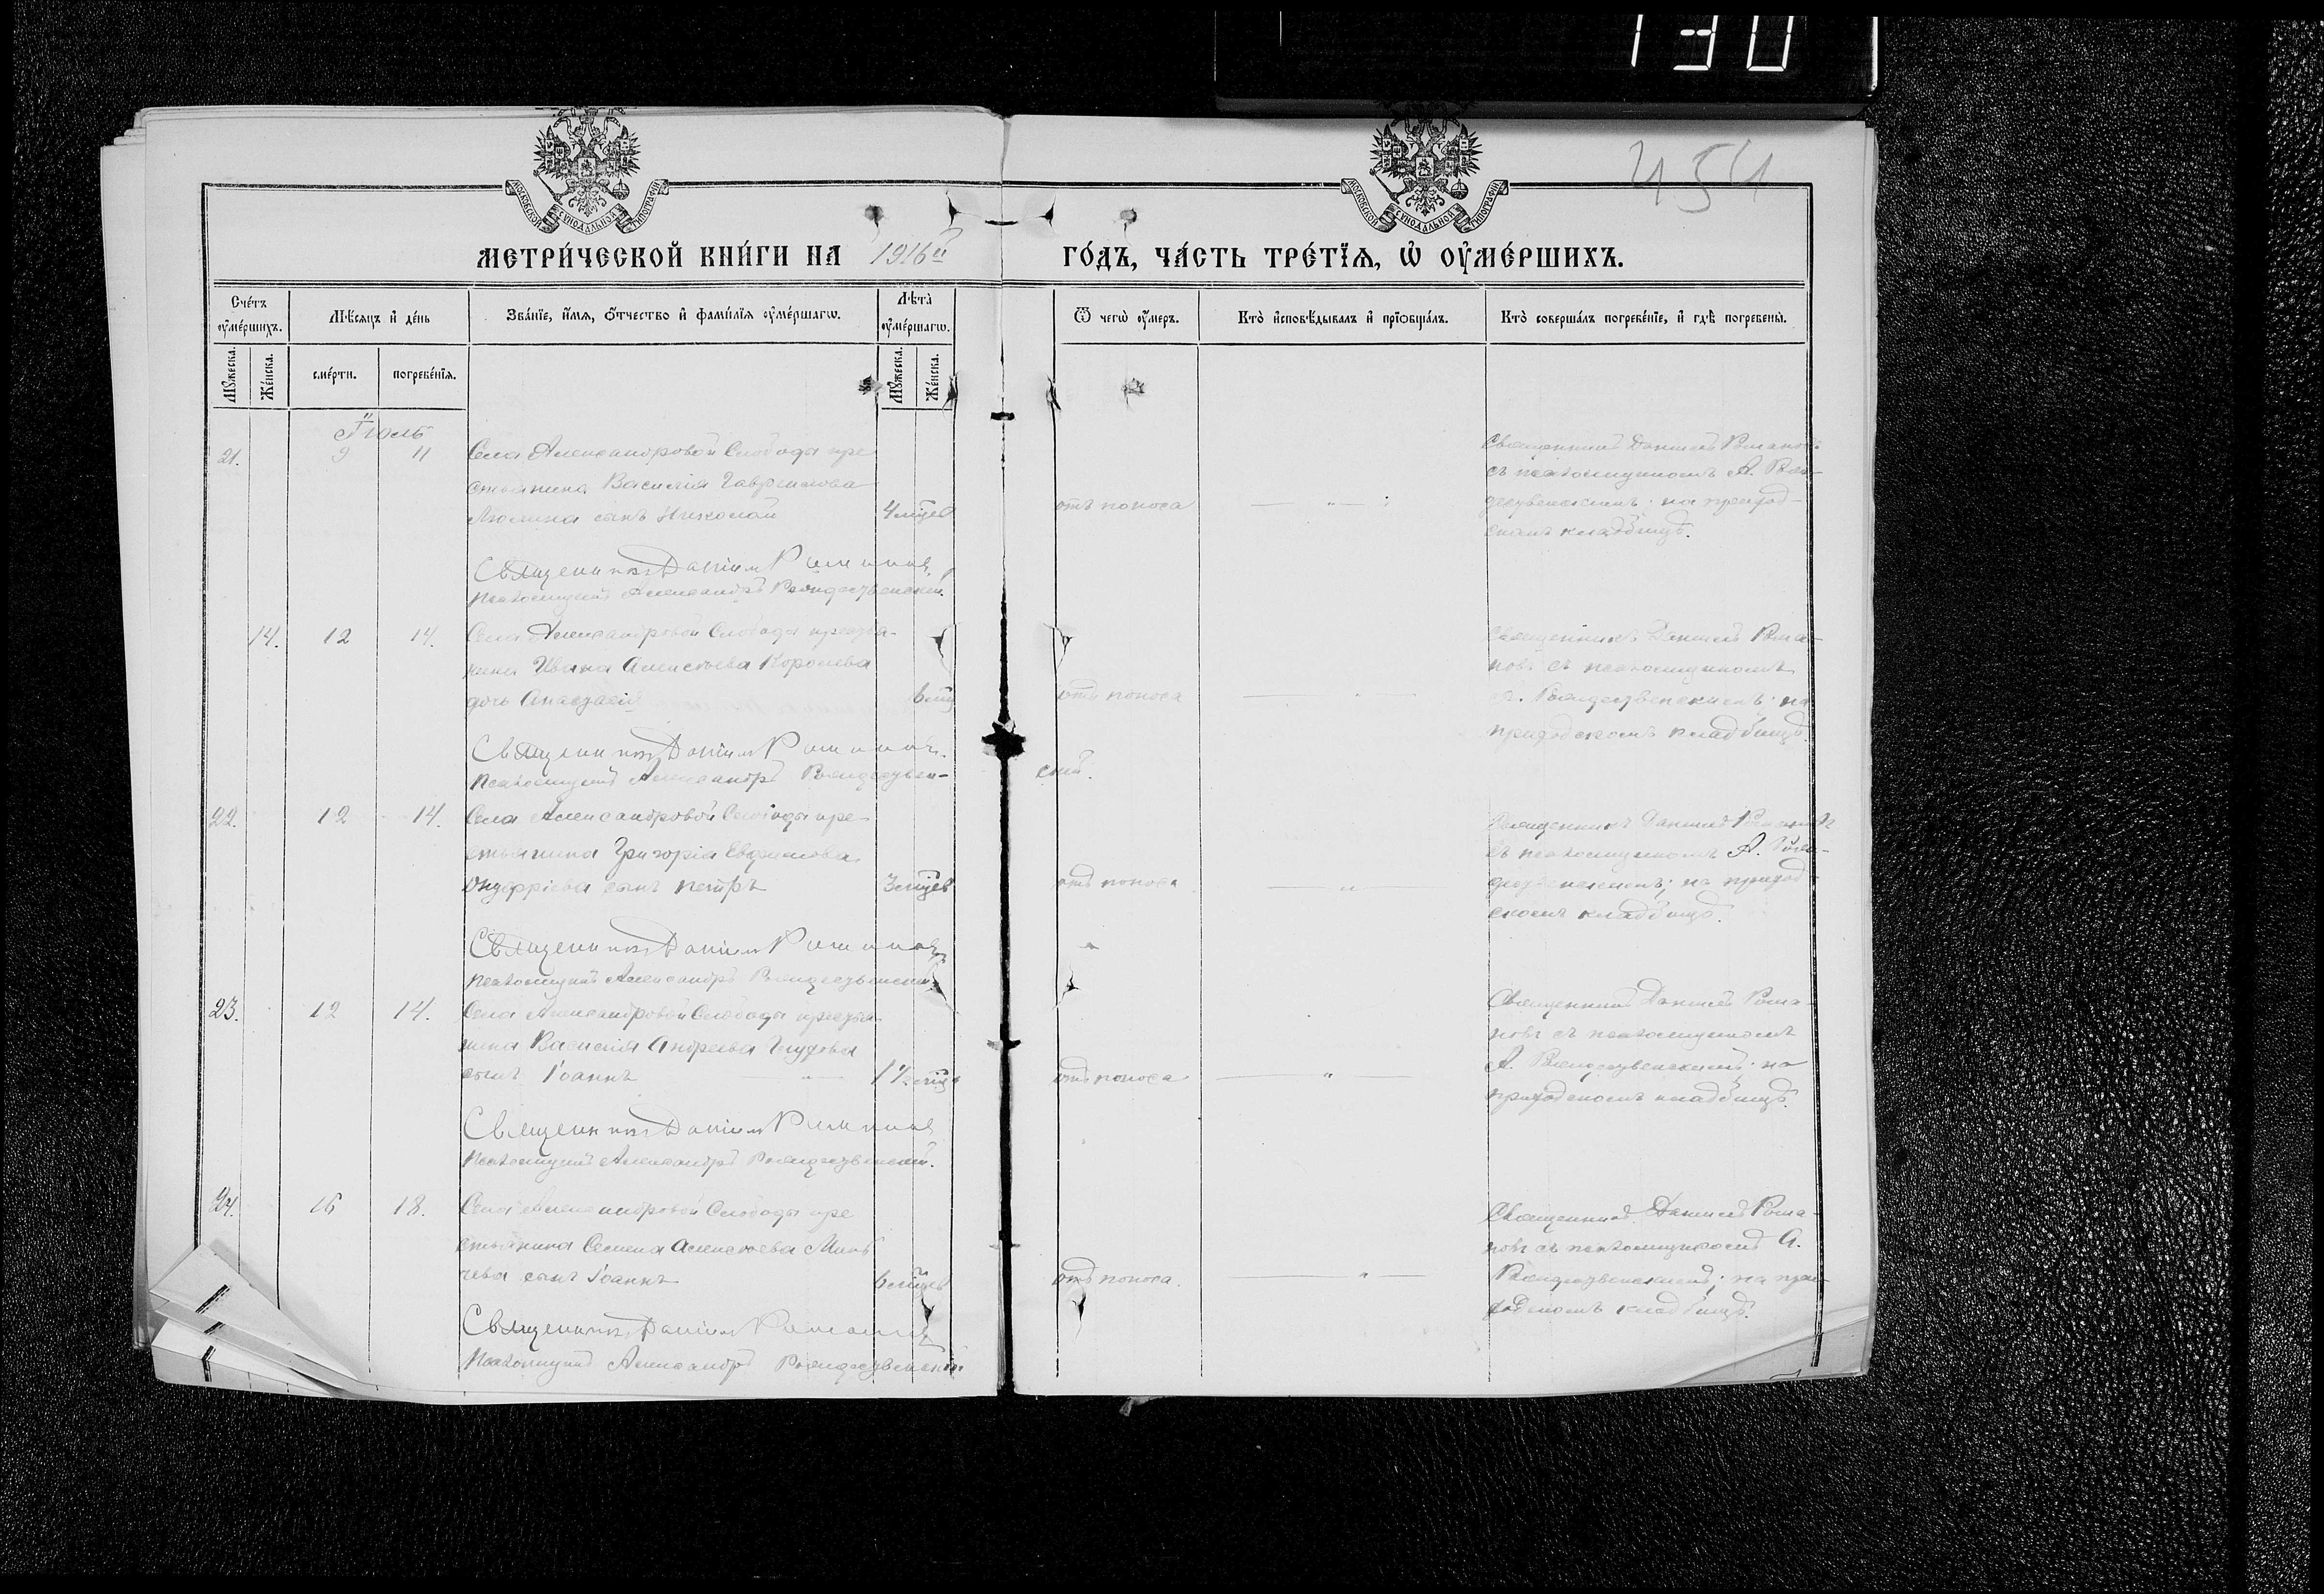 130
454
МОСКОВСКОЙ СѴНОДАЛЬНОЙ ТИПОГРАФІИ
МОСКОВСКОЙ СѴНОДАЛЬНОЙ ТИПОГРАФІИ
МЕТРИ́ЧЕСКОЙ КНИ́ГИ НА 1916й ГО́ДЪ, ЧА́СТЬ ТРЕ́ТЇѦ, Ѡ҆ ОУ҆МЕ́РШИХЪ.
Сче́тъ оу҆ме́ршихъ.
Мѣ́сяцъ и҆ де́нь
Зва́нїе, и҆́мѧ, ѻ҆́тчество и҆ фами́лїѧ оу҆ме́ршагѡ.
Лѣта̀ оу҆ме́ршагѡ.
Ѿ чегѡ̀ оу҆́меръ.
Кто̀ и҆сповѣ́дывалъ и҆ прїѻбща́лъ.
Кто̀ соверша́лъ погребе́нїе, и҆ гдѣ̀ погребены̀.
Мꙋ́жеска.
Же́нска.
сме́рти.
погребе́нїѧ.
Мꙋ́жеска.
Же́нска.
Іюль
21. 9 11 Села Александровой Слободы кре-
стьянина Василія Гавриилова
сынъ Николай 4 мцев отъ поноса
Священникъ Даніилъ Романовъ
съ псаломщикомъ А. Рож-
дественскимъ; на приход-
скомъ кладбищѣ.
Священникъ Даніилъ Романовъ
Псаломщикъ Александръ Рождественскій.
14. 12 14. Села Александровой Слободы крестья-
нина Ивана Алексѣева Королева
дочь Анастасія 6 мц отъ поноса
Священникъ Даніилъ Рома-
новъ съ псаломщикомъ
А. Рождественскимъ; на
приходскомъ кладбищѣ.
Священникъ Даніилъ Романовъ
Псаломщикъ Александръ Рождествен-
скій.
22. 12 14. Села Александровой Слободы кре-
стьянина Григорія Евфимова
Онуфріева сынъ Петръ 3 мцев отъ поноса
Священникъ Даніилъ Романовъ
съ псаломщикомъ А. Рож-
дественскимъ; на приход-
скомъ кладбищѣ.
Священникъ Даніилъ Романовъ
Псаломщикъ Александръ Рождественскій
23. 12 14. Села Александровой Слободы крестья-
нина Василія Андреева Глухова
сынъ Іоаннъ 1½ мцев отъ поноса
Священникъ Даніилъ Рома-
новъ съ псаломщикомъ
А. Рождественскимъ; на
приходскомъ кладбищѣ.
Священникъ Даніилъ Романовъ
Псаломщикъ Александръ Рождественскій.
24. 16 18. Села Александровой Слободы кре-
стьянина Семена Алексѣева Мин-
чева сынъ Іоаннъ 6 мцев отъ поноса.
Священникъ Даніилъ Рома-
новъ съ псаломщикомъ А.
Рождественскимъ; на при-
ходскомъ кладбищѣ.
Священникъ Даніилъ Романовъ
Псаломщикъ Александръ Рождественскій